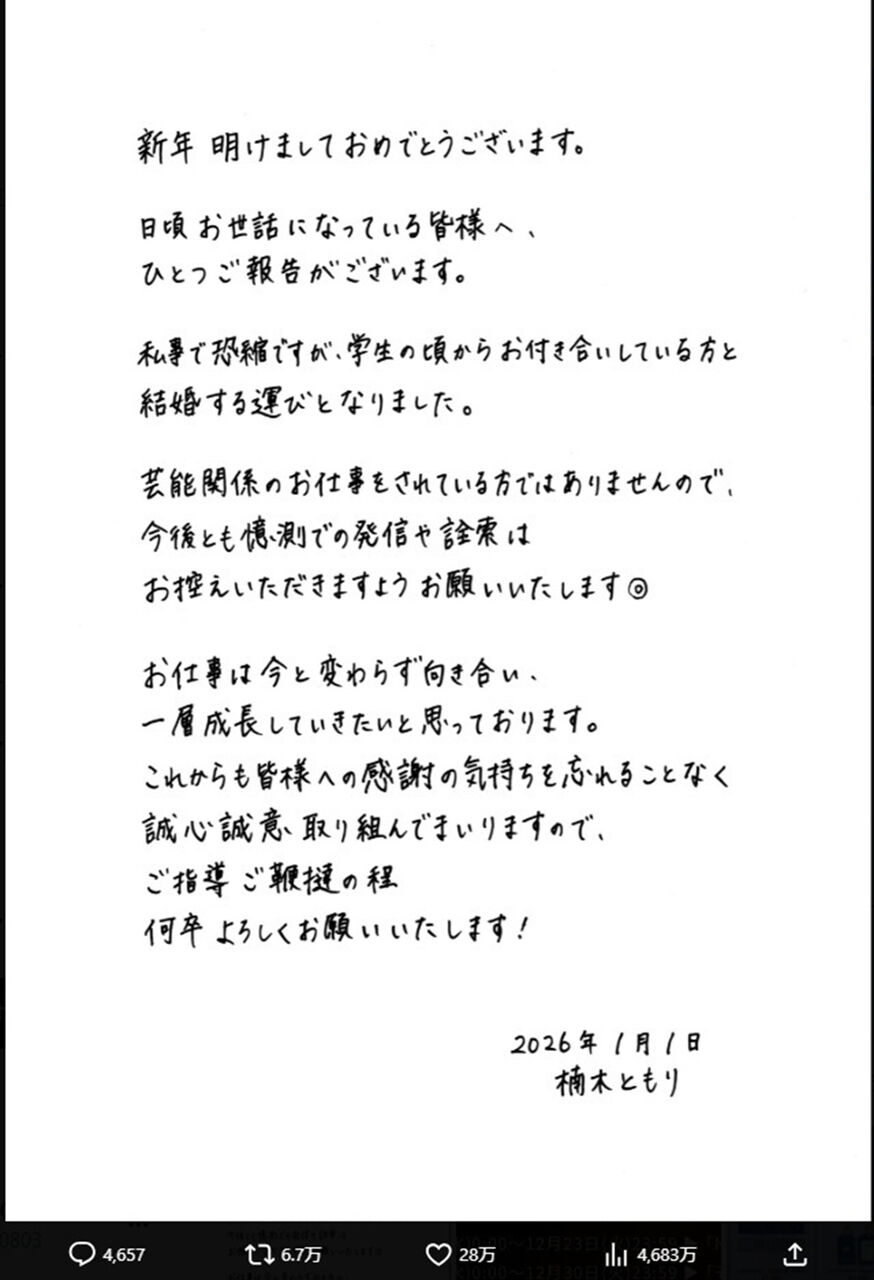 新年 明けましておめでとうございます。
日頃 お世話になっている皆様へ、
ひとつご報告がございます。
私事で恐縮ですが、学生の頃からお付き合いしている方と
結婚する運びとなりました。
芸能関係のお仕事をされている方ではありませんので、
今後とも憶測での発信や詮索は
お控えいただきますよう お願いいたします◎
お仕事は今と変わらず向き合い、
一層成長していきたいと思っております。
これからも皆様への感謝の気持ちを忘れることなく
誠心誠意、取り組んでまいりますので、
ご指導 ご鞭撻の程
何卒 よろしくお願いいたします!
2026年 1月1日
楠木ともり
4,657 6.7万 28万 4,683万